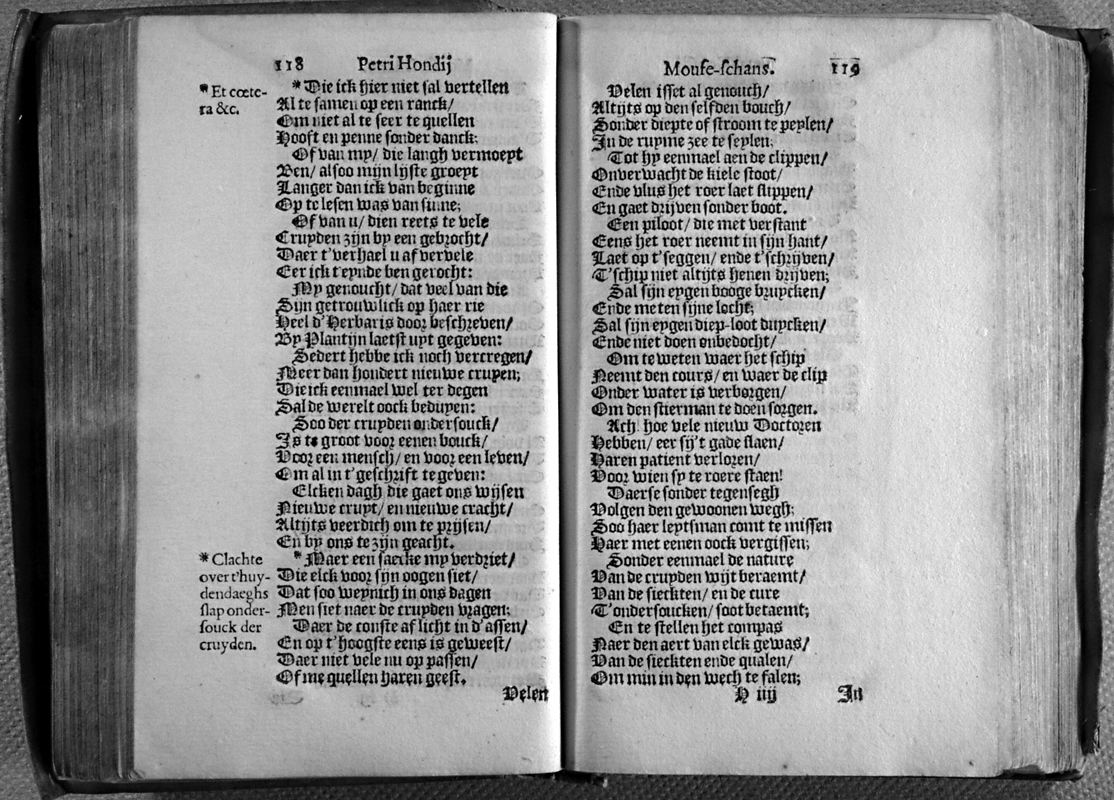 118 Petri Hondij
* Et cœte-
ra &c.
* Die ick hier niet sal vertellen
Al te samen op een ranck/
Om niet al te seer te quellen
Hooft en penne sonder danck:
Of van my/ die langh vermoeyt
Ben/ alsoo mijn lijste groeyt
Langer dan ick van beginne
Op te lesen was van sinne;
Of van u/ dien reets te vele
Cruyden zijn by een gebrocht/
Daer t'verhael u af vervele
Eer ick t'eynde ben gerocht:
My genoucht/ dat veel van die
Sijn getrouwlick op haer rie
Heel d'Herbaris door beschreven/
By Plantijn laetst uyt gegeven:
Sedert hebbe ick noch vercregen/
Meer dan hondert nieuwe cruyen;
Die ick eenmael wel ter degen
Sal de werelt oock beduyen:
Soo der cruyden ondersouck/
Is te groot voor eenen bouck/
Voor een mensch/ en voor een leven/
Om al in t'geschrift te geven:
Elcken dagh die gaet ons wijsen
Nieuwe cruyt/ en nieuwe cracht/
Altijts veerdich om te prijsen/
En by ons te zijn geacht.
* Clachte
over t'huy-
dendaeghs
slap onder-
souck der
cruyden.
* Maer een saecke my verdriet/
Die elck voor sijn oogen siet/
Dat soo weynich in ons dagen
Men siet naer de cruyden vragen:
Daer de conste af licht in d'assen/
En op t'hoogste eens is geweest/
Daer niet vele nu op passen/
Of me quellen haren geest.
Velen
Mouse-schans. 119
Velen isset al genouch/
Altijts op den selfden bouch/
Sonder diepte of stroom te peylen/
In de ruyme zee te seylen:
Tot hy eenmael aen de clippen/
Onverwacht de kiele stoot/
Ende vlus het roer laet slippen/
En gaet drijven sonder boot.
Een piloot/ die met verstant
Eens het roer neemt in sijn hant/
Laet op t'seggen/ ende t'schrijven/
T'schip niet altijts henen drijven;
Sal sijn eygen booge bruycken/
Ende meten sijne locht;
Sal sijn eygen diep-loot duycken/
Ende niet doen onbedocht/
Om te weten waer het schip
Neemt den cours/ en waer de clip
Onder water is verborgen/
Om den stierman te doen sorgen.
Ach! hoe vele nieuw Doctoren
Hebben/ eer sij't gade slaen/
Haren patient verloren/
Voor wien sy te roere staen!
Daerse sonder tegensegh
Volgen den gewoonen wegh:
Soo haer leytsman comt te missen
Haer met eenen oock vergissen;
Sonder eenmael de nature
Van de cruyden wijt beraemt/
Van de sieckten/ en de cure
T'ondersoucken/ soot betaemt;
En te stellen het compas
Naer den aert van elck gewas/
Van de sieckten ende qualen/
Om min in den wech te falen;
H iiij In